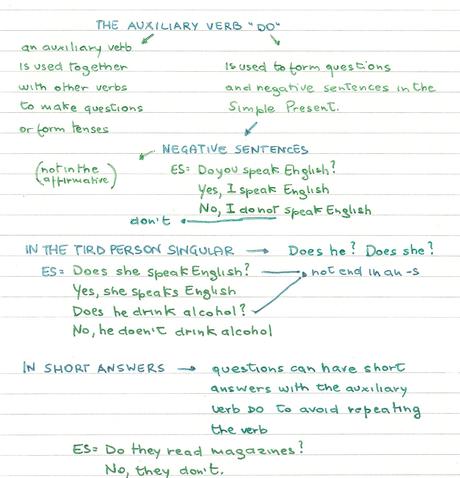 THE AUXILIARY VERB "DO"
an auxiliary verb
is used together
with other verbs
to make questions
or form tenses
is used to form questions
and negative sentences in the
Simple Present.
NEGATIVE SENTENCES
(not in the
affirmative)
ES: Do you speak English?
Yes, I speak English
No, I do not speak English
don't
IN THE TIRD PERSON SINGULAR → Does he? Does she?
ES: Does she speak English? → not end in an -s
Yes, she speaks English
Does he drink alcohol?
No, he doen't drink alcohol
IN SHORT ANSWERS → questions can have short
answers with the auxiliary
verb DO to avoid repeating
the verb
ES: Do they read magazines?
No, they don't.